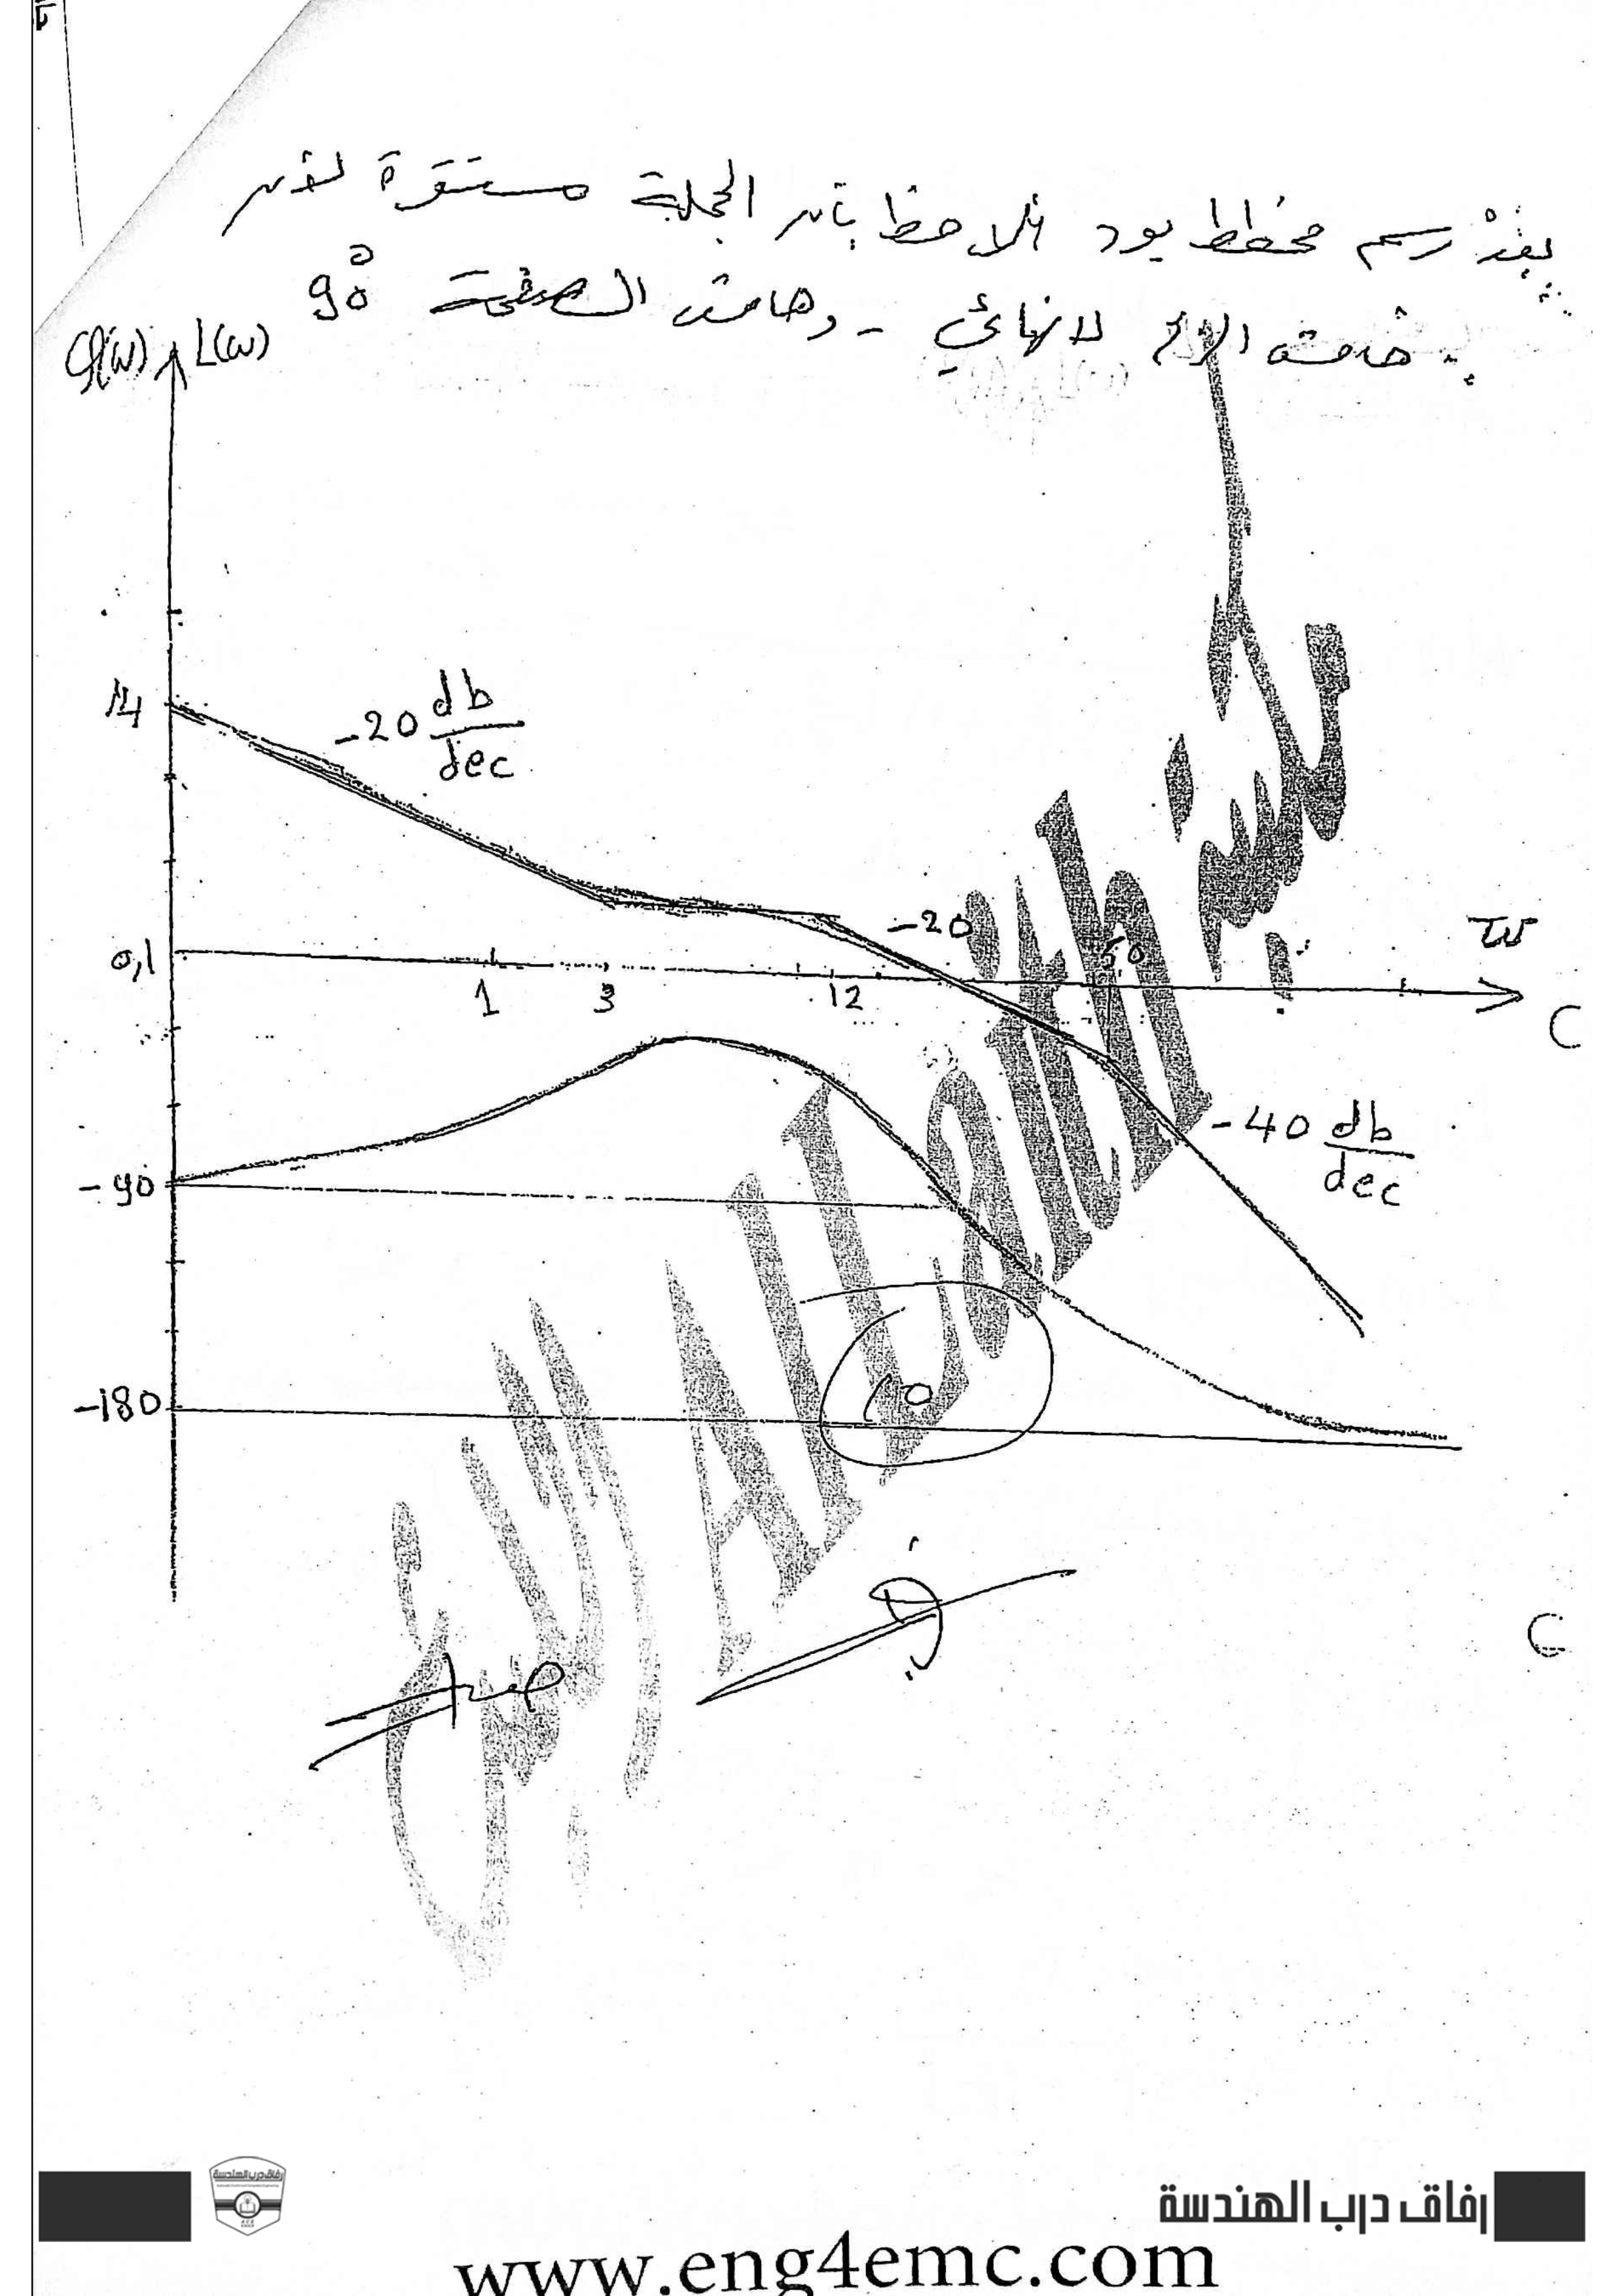 بعد رسم مخطط بود نلاحظ بأن الجملة مستقرة لأن
هامش الربح لانهائي - وهامش الصفحة 90°
φ(ω) L(ω)
14
-20 db/dec
-20
50
ω
0,1
1
3
12
-40 db/dec
-90
-180
AlLaith
رفاق درب الهندسة
www.eng4emc.com